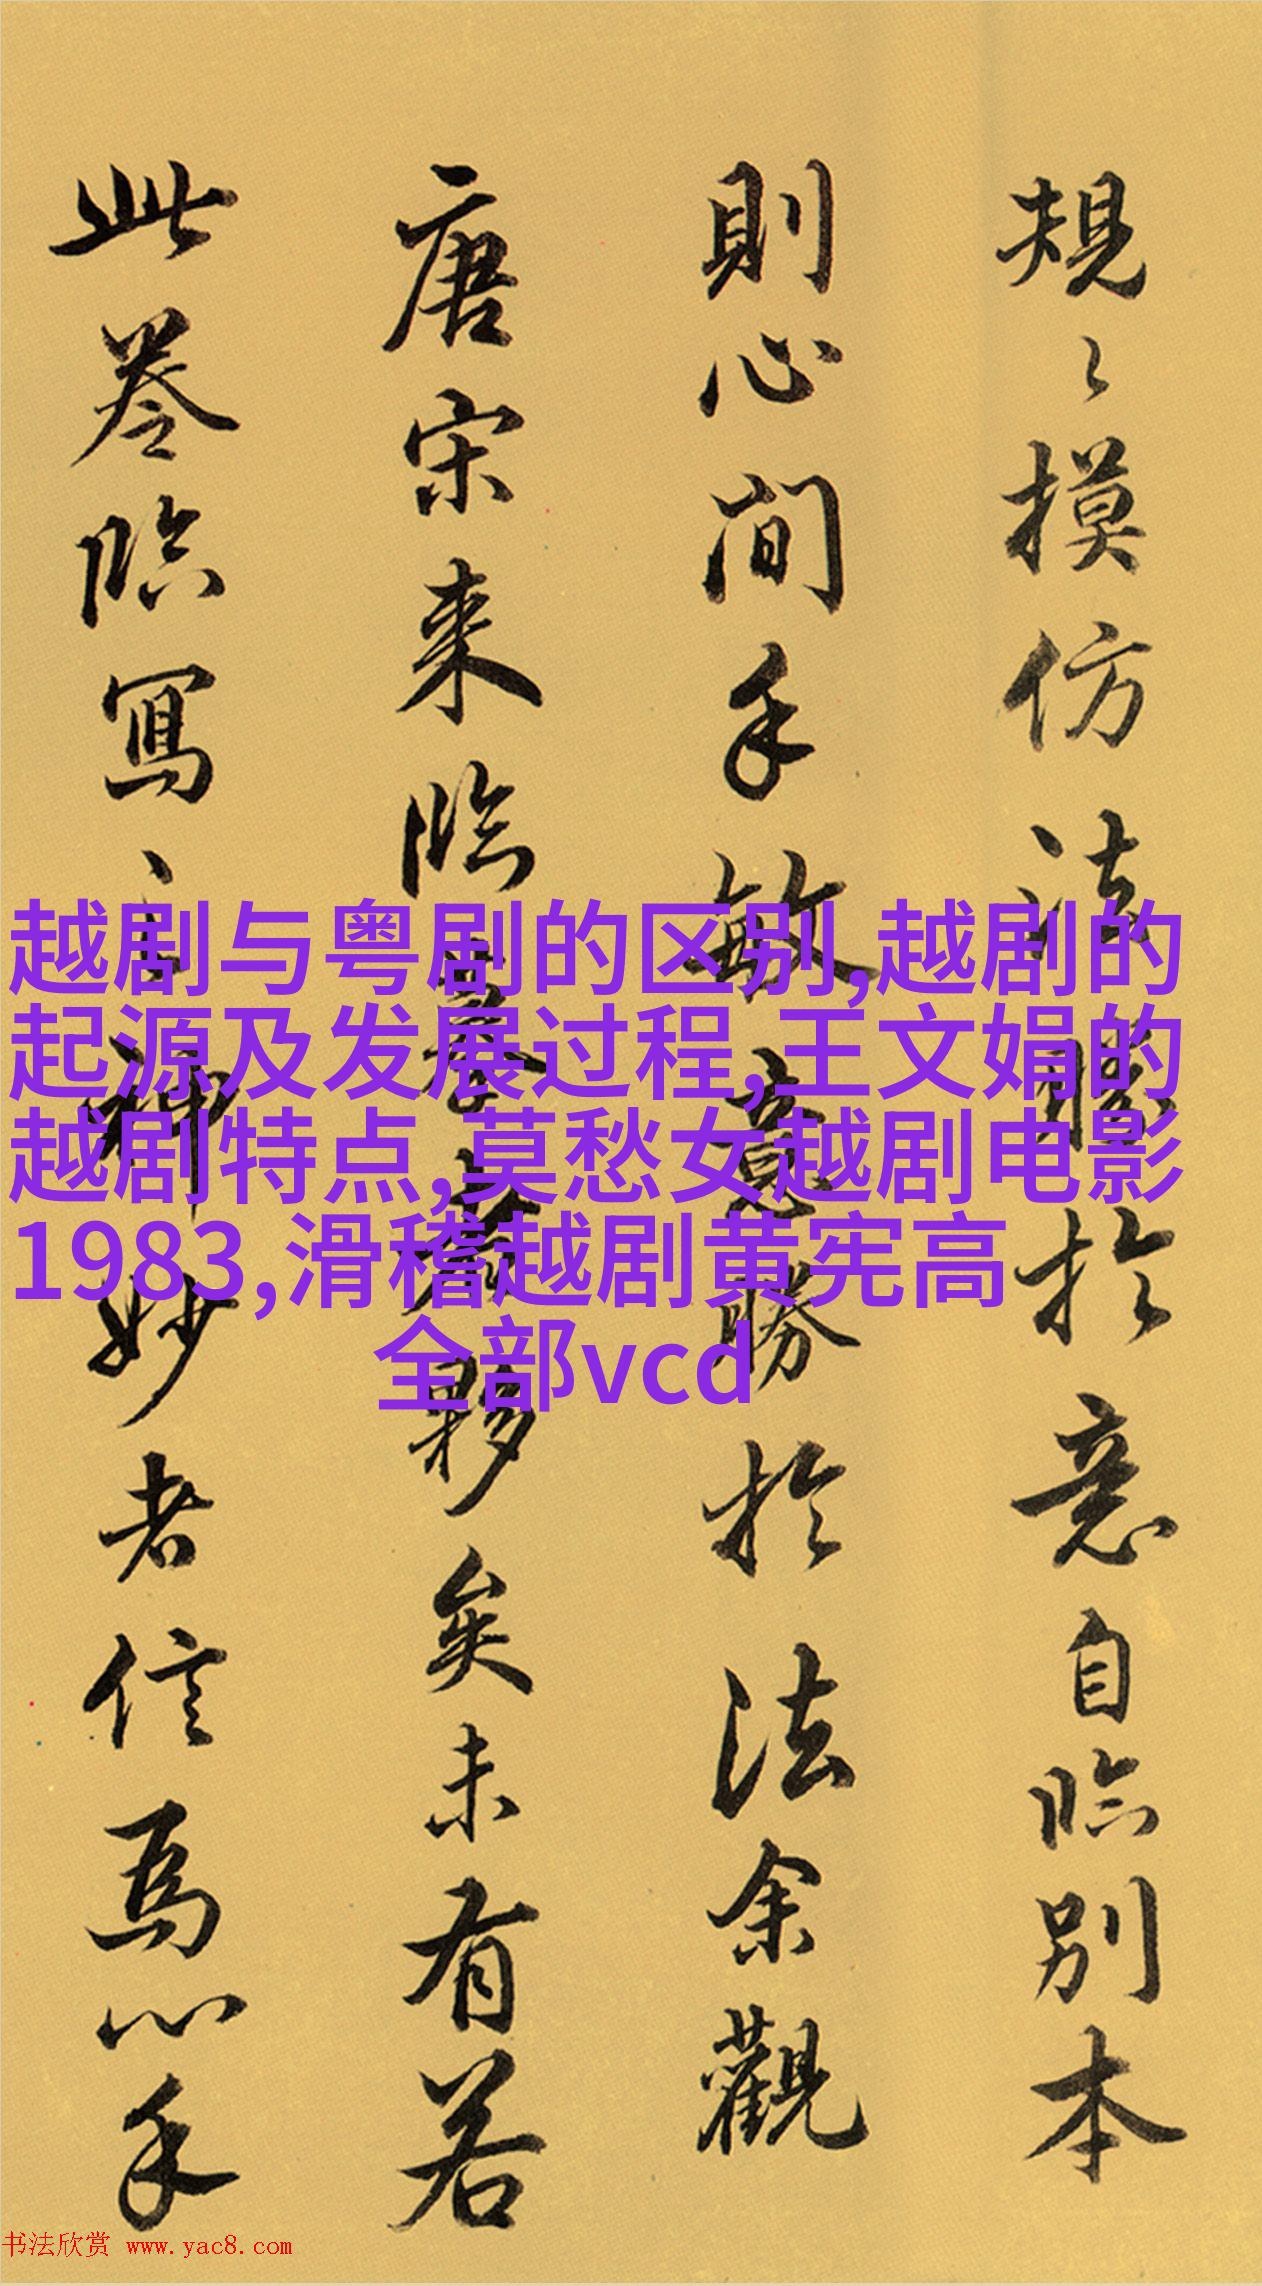 規〻摸仿法勝於意自臨別本
則心閒手敏意勝於法余觀
唐宋来臨摹者夥矣未有若
此卷臨寫之神妙者信焉心手
越剧与粤剧的区别,越剧的
起源及发展过程,王文娟的
越剧特点,莫愁女越剧电影
1983,滑稽越剧黄宪高
全部vcd
书法欣赏 www.yac8.com